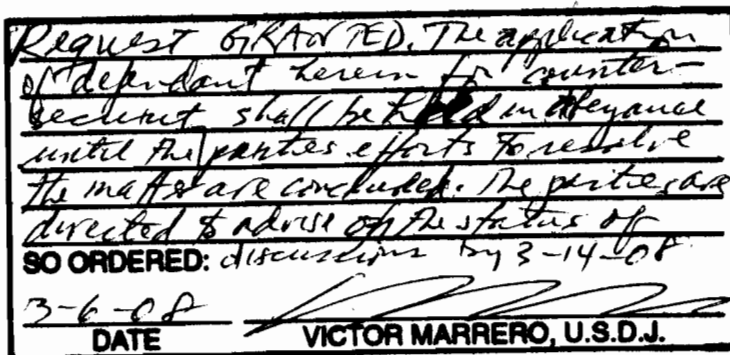 Request GRANTED. The application
of defendant herein for counter-
security shall be held in abeyance
until the parties efforts to resolve
the matter are concluded. The parties are
directed to advise of the status of
SO ORDERED: discussions by 3-14-08
3-6-08
DATE VICTOR MARRERO, U.S.D.J.